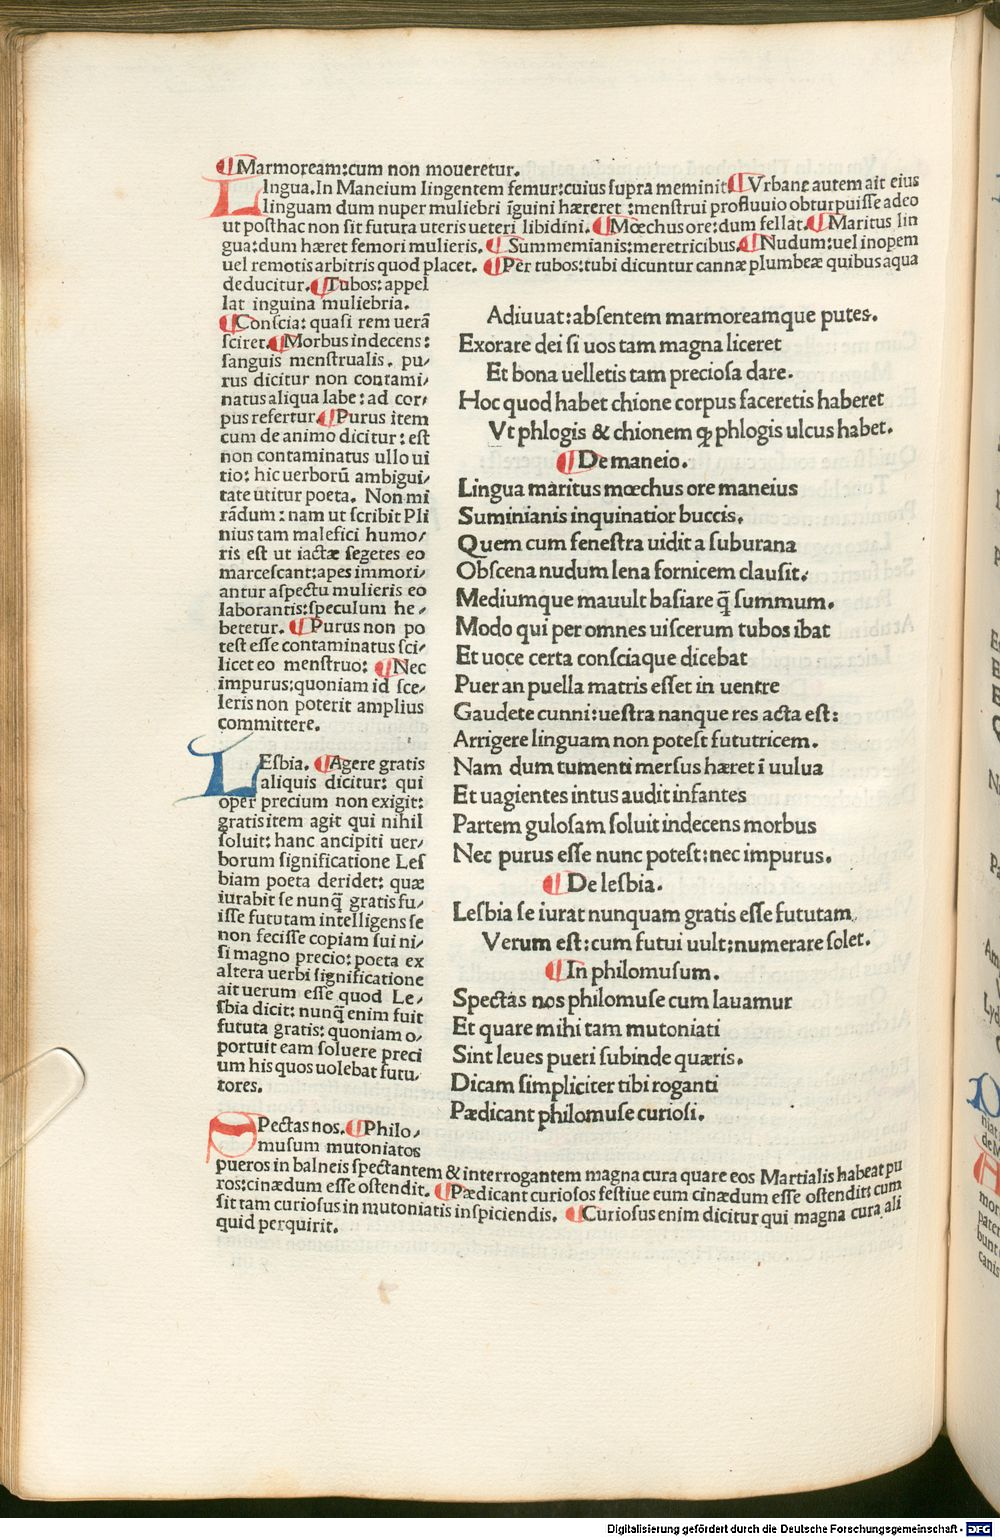 ¶Marmoream:cum non moueretur.
LIngua.In Maneium lingentem femur:cuius ſupra meminit ¶Vrbane autem ait eius
linguam dum nuper muliebri īguini hæreret :menſtrui profluuio obturpuiſſe adeo
ut poſthac non ſit futura uteris ueteri libidini. ¶Mœchus ore:dum fellat. ¶Maritus lin
gua:dum hæret femori mulieris. ¶ Summemianis:meretricibus. ¶Nudum:uel inopem
uel remotis arbitris quod placet. ¶Per tubos:tubi dicuntur cannæ plumbeæ quibus aqua
deducitur. ¶Tubos: appel
lat inguina muliebria.
¶Conſcia: quaſi rem uerā
ſciret. ¶Morbus indecens:
ſanguis menſtrualis. pu/
rus dicitur non contami/
natus aliqua labe: ad cor/
pus refertur. ¶Purus item
cum de animo dicitur: eſt
non contaminatus ullo ui
tio: hic uerborū ambigui/
tate utitur poeta. Non mi
rādum: nam ut ſcribit Pli
nius tam malefici humo/
ris eſt ut iactæ ſegetes eo
marceſcant:apes immori/
antur aſpectu mulieris eo
laborantis:ſpeculum he/
betetur. ¶Purus non po
teſt eſſe contaminatus ſci/
licet eo menſtruo: ¶Nec
impurus:quoniam id ſce/
leris non poterit amplius
committere.
LEſbia. ¶Agere gratis
aliquis dicitur: qui
oper precium non exigit:
gratis item agit qui nihil
ſoluit: hanc ancipiti uer/
borum ſignificatione Leſ
biam poeta deridet: quæ
iurabit ſe nunq̄ gratis fu/
iſſe fututam intelligens ſe
non feciſſe copiam ſui ni/
ſi magno precio: poeta ex
altera uerbi ſignificatione
ait uerum eſſe quod Le/
ſbia dicit: nunq̄ enim fuit
fututa gratis: quoniam o/
portuit eam ſoluere preci
um his quos uolebat futu/
tores.
SPectas nos. ¶Philo/
muſum mutoniatos
pueros in balneis ſpectantem & interrogantem magna cura quare eos Martialis habeat pu
ros:cinædum eſſe oſtendit. ¶Pædicant curioſos feſtiue eum cinædum eſſe oſtendit: cum
ſit tam curioſus in mutoniatis inſpiciendis. ¶Curioſus enim dicitur qui magna cura ali
quid perquirit.
Adiuuat:abſentem marmoreamque putes.
Exorare dei ſi uos tam magna liceret
Et bona uelletis tam precioſa dare.
Hoc quod habet chione corpus faceretis haberet
Vt phlogis & chionem ꝙ phlogis ulcus habet.
¶De maneio.
Lingua maritus mœchus ore maneius
Suminianis inquinatior buccis.
Quem cum feneſtra uidit a ſuburana
Obſcena nudum lena fornicem clauſit:
Mediumque mauult baſiare q̄ ſummum.
Modo qui per omnes uiſcerum tubos ibat
Et uoce certa conſciaque dicebat
Puer an puella matris eſſet in uentre
Gaudete cunni:ueſtra nanque res acta eſt:
Arrigere linguam non poteſt fututricem.
Nam dum tumenti merſus hæret ī uulua
Et uagientes intus audit infantes
Partem guloſam ſoluit indecens morbus
Nec purus eſſe nunc poteſt:nec impurus.
¶De lesbia.
Lesbia ſe iurat nunquam gratis eſſe fututam.
Verum eſt:cum futui uult:numerare ſolet.
¶In philomuſum.
Spectas nos philomuſe cum lauamur
Et quare mihi tam mutoniati
Sint leues pueri ſubinde quæris.
Dicam ſimpliciter tibi roganti
Pædicant philomuſe curioſi.
Digitalisierung gefördert durch die Deutsche Forschungsgemeinschaft - DFG